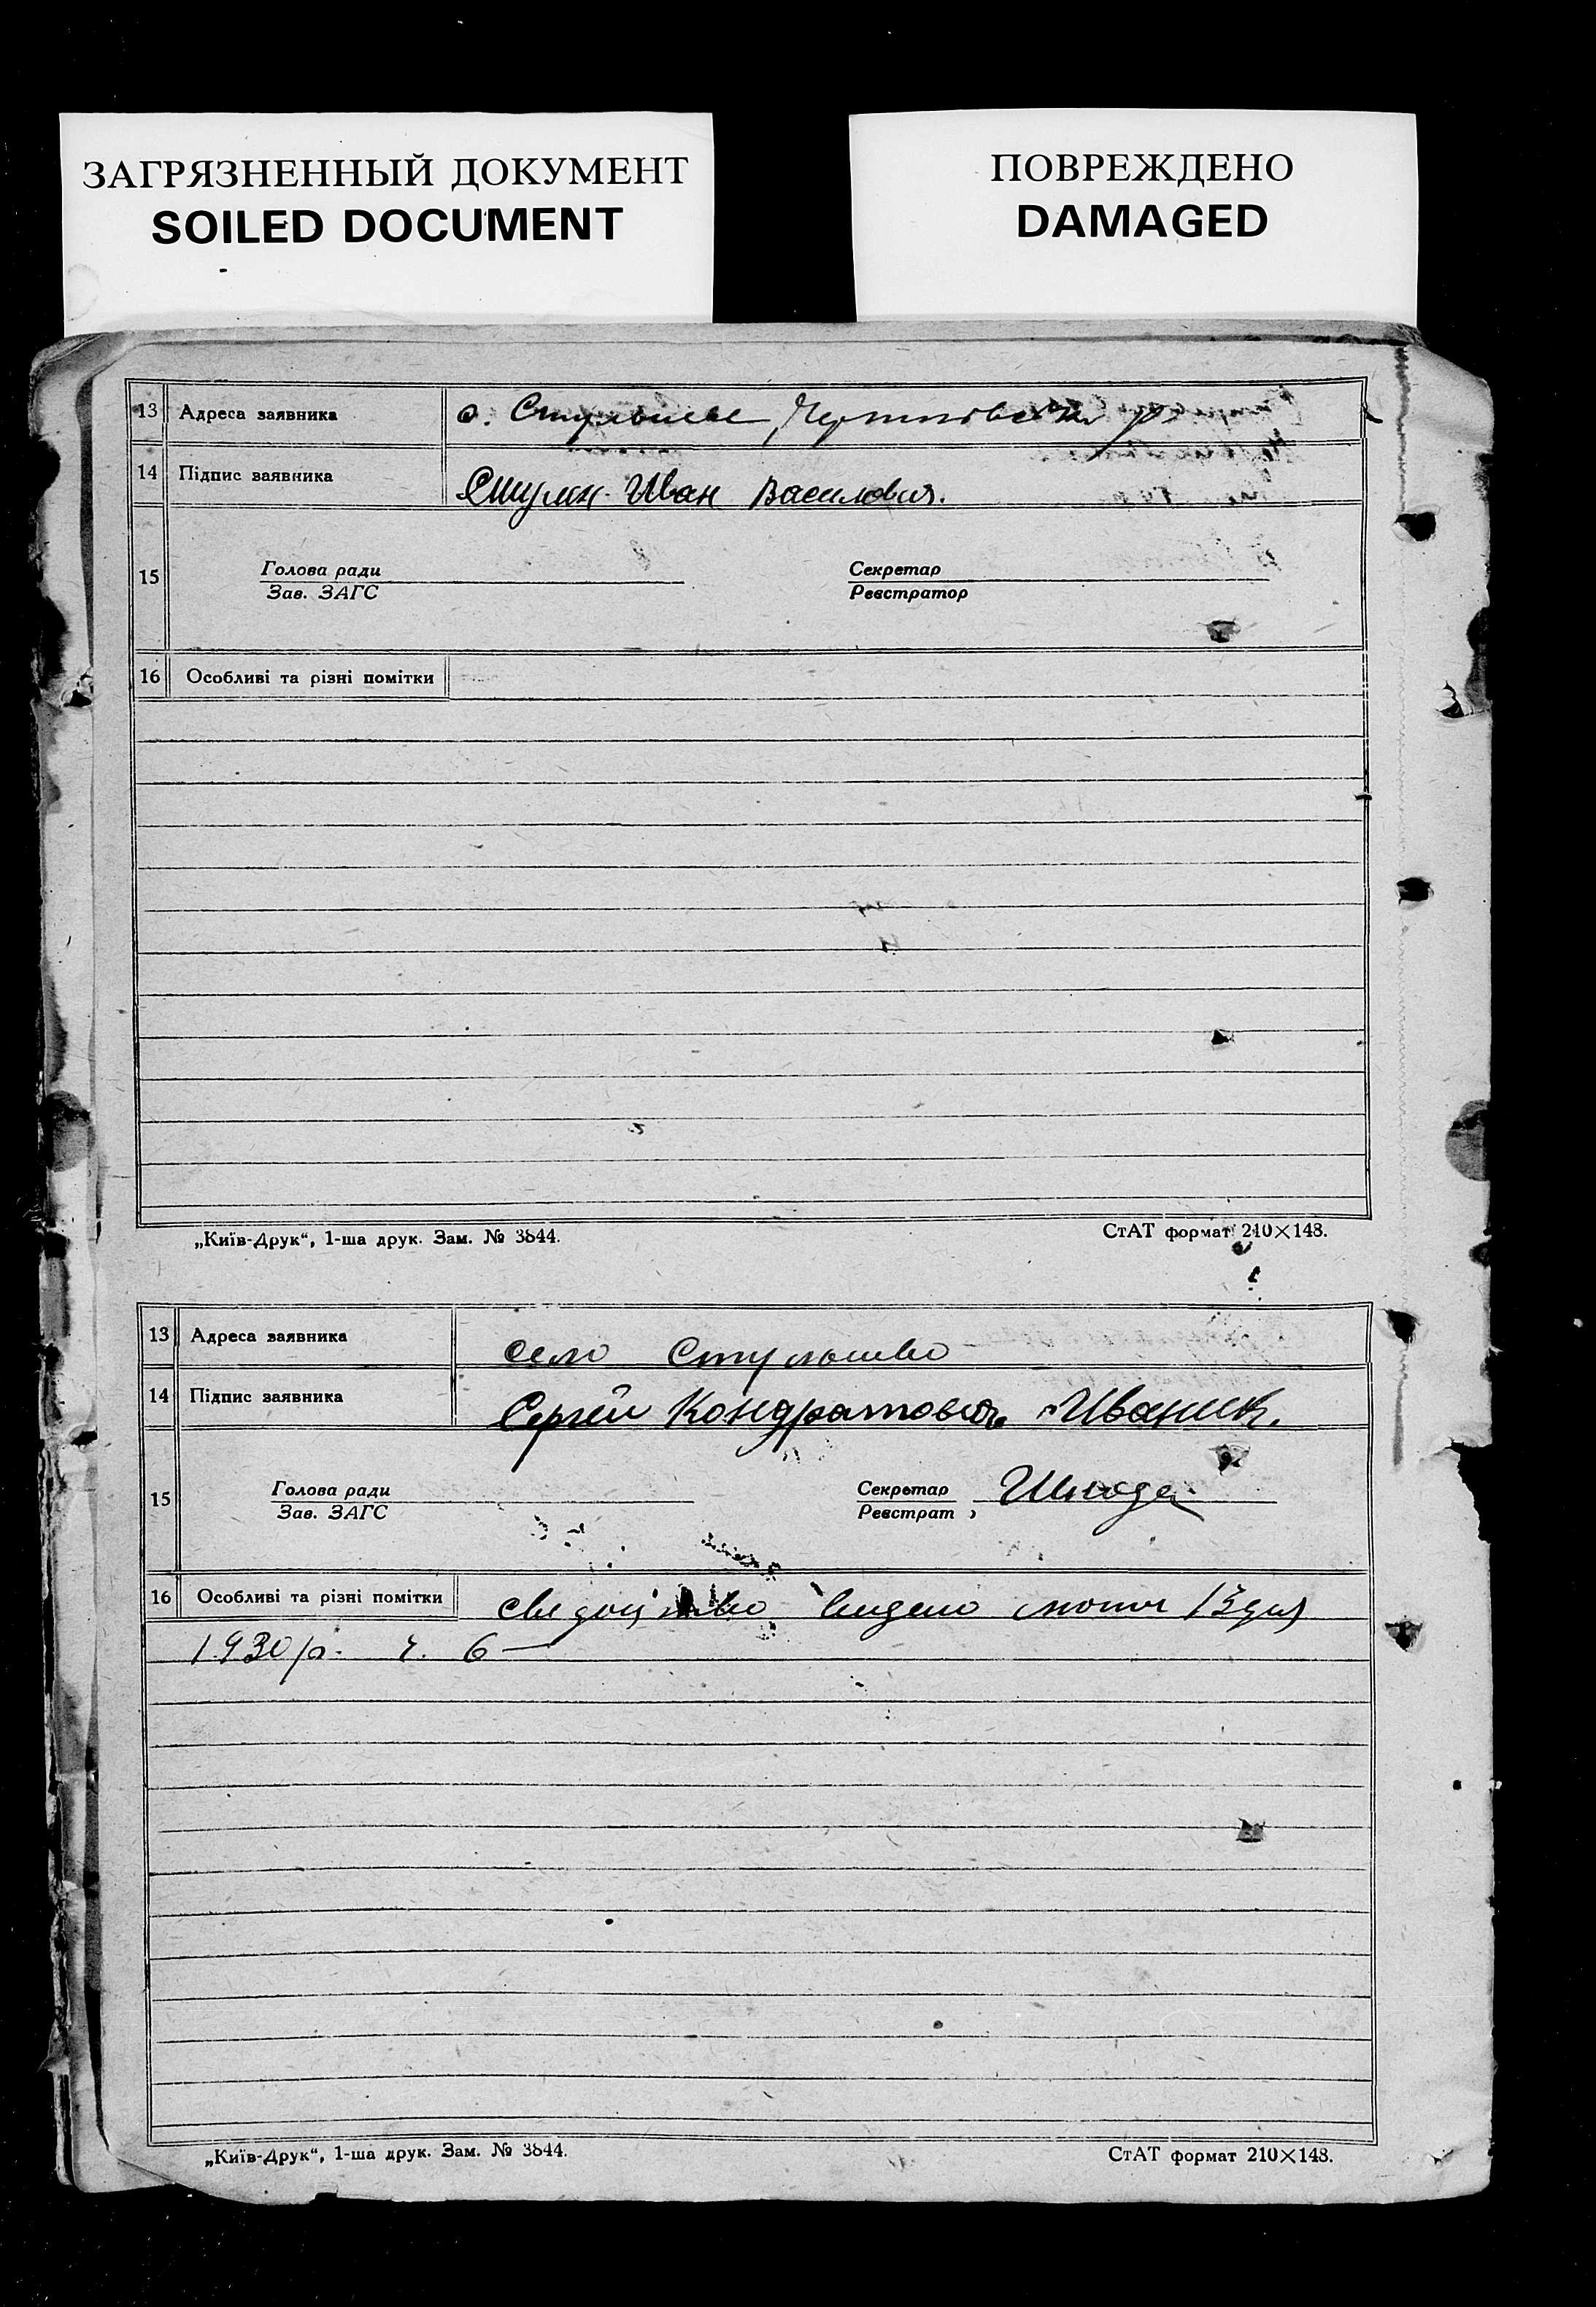 ЗАГРЯЗНЕННЫЙ ДОКУМЕНТ
SOILED DOCUMENT
ПОВРЕЖДЕНО
DAMAGED
13 Адреса заявника с.
14 Підпис заявника Иван Василович.
15 Голова ради Секретар
Зав. ЗАГС Реєстратор
16 Особливі та різні помітки
„Київ-Друк“, 1-ша друк. Зам. № 3844. СтАТ формат 210×148.
13 Адреса заявника село
14 Підпис заявника Сергей Кондратович Иваник.
15 Голова ради Секретар
Зав. ЗАГС Реєстрат
16 Особливі та різні помітки видено 13 дня
1930 р. ч. 6
„Київ-Друк“, 1-ша друк. Зам. № 3844. СтАТ формат 210×148.